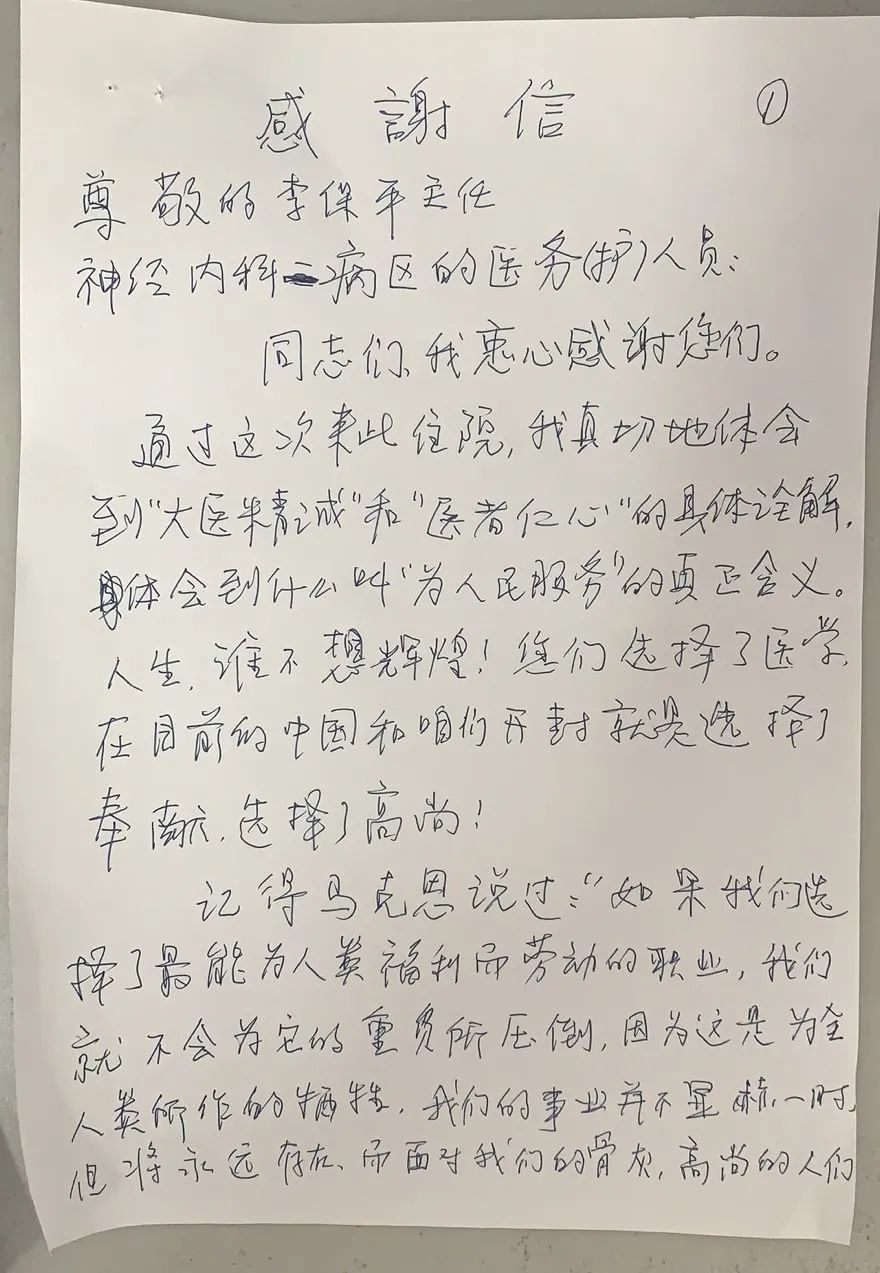 感 謝 信 ①
尊敬的李保平主任
神经内科二病区的医务(护)人员:
同志们、我衷心感谢您们。
通过这次来此住院,我真切地体会
到"大医精诚"和"医者仁心"的具体诠解,
体会到什么叫"为人民服务"的真正含义。
人生,谁不想辉煌!您们选择了医学,
在目前的中国和咱们开封就是选择了
奉献,选择了高尚!
记得马克思说过:"如果我们选
择了最能为人类福利而劳动的职业,我们
就不会为它的重负所压倒,因为这是为全
人类所作的牺牲,我们的事业并不显赫一时,
但将永远存在、而面对我们的骨灰,高尚的人们